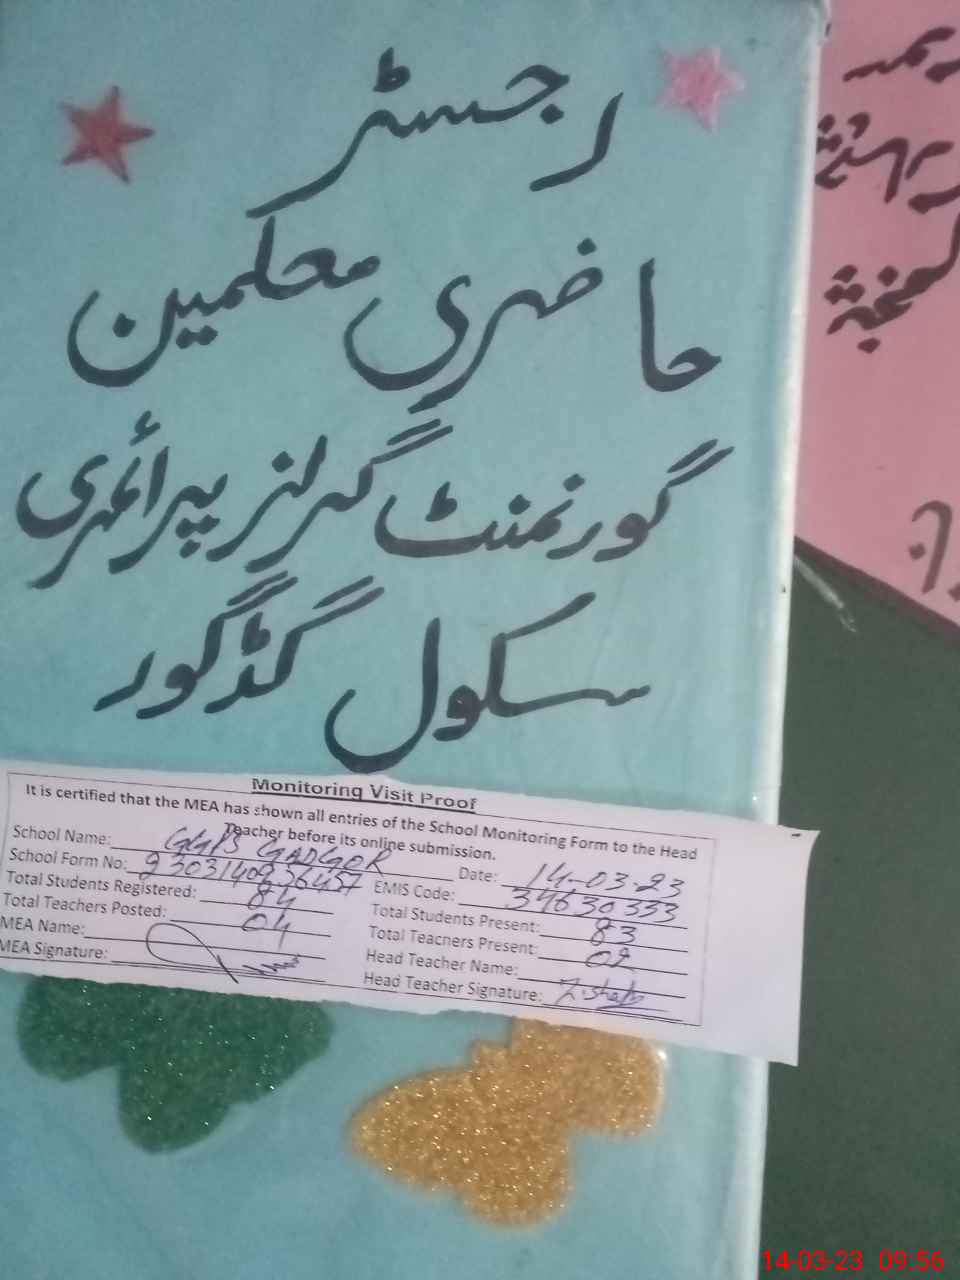 رجسٹر
حاضری معلمین
گورنمنٹ گرلز پرائمری
سکول گڈگور
Monitoring Visit Proof
It is certified that the MEA has shown all entries of the School Monitoring Form to the Head
Teacher before its online submission.
School Name: GGPS GADGOR Date: 14-03-23
School Form No: EMIS Code: 34630333
Total Students Registered: 84 Total Students Present: 83
Total Teachers Posted: 04 Total Teachers Present: 02
MEA Name: Head Teacher Name:
MEA Signature: Head Teacher Signature:
14-03-23 09:56